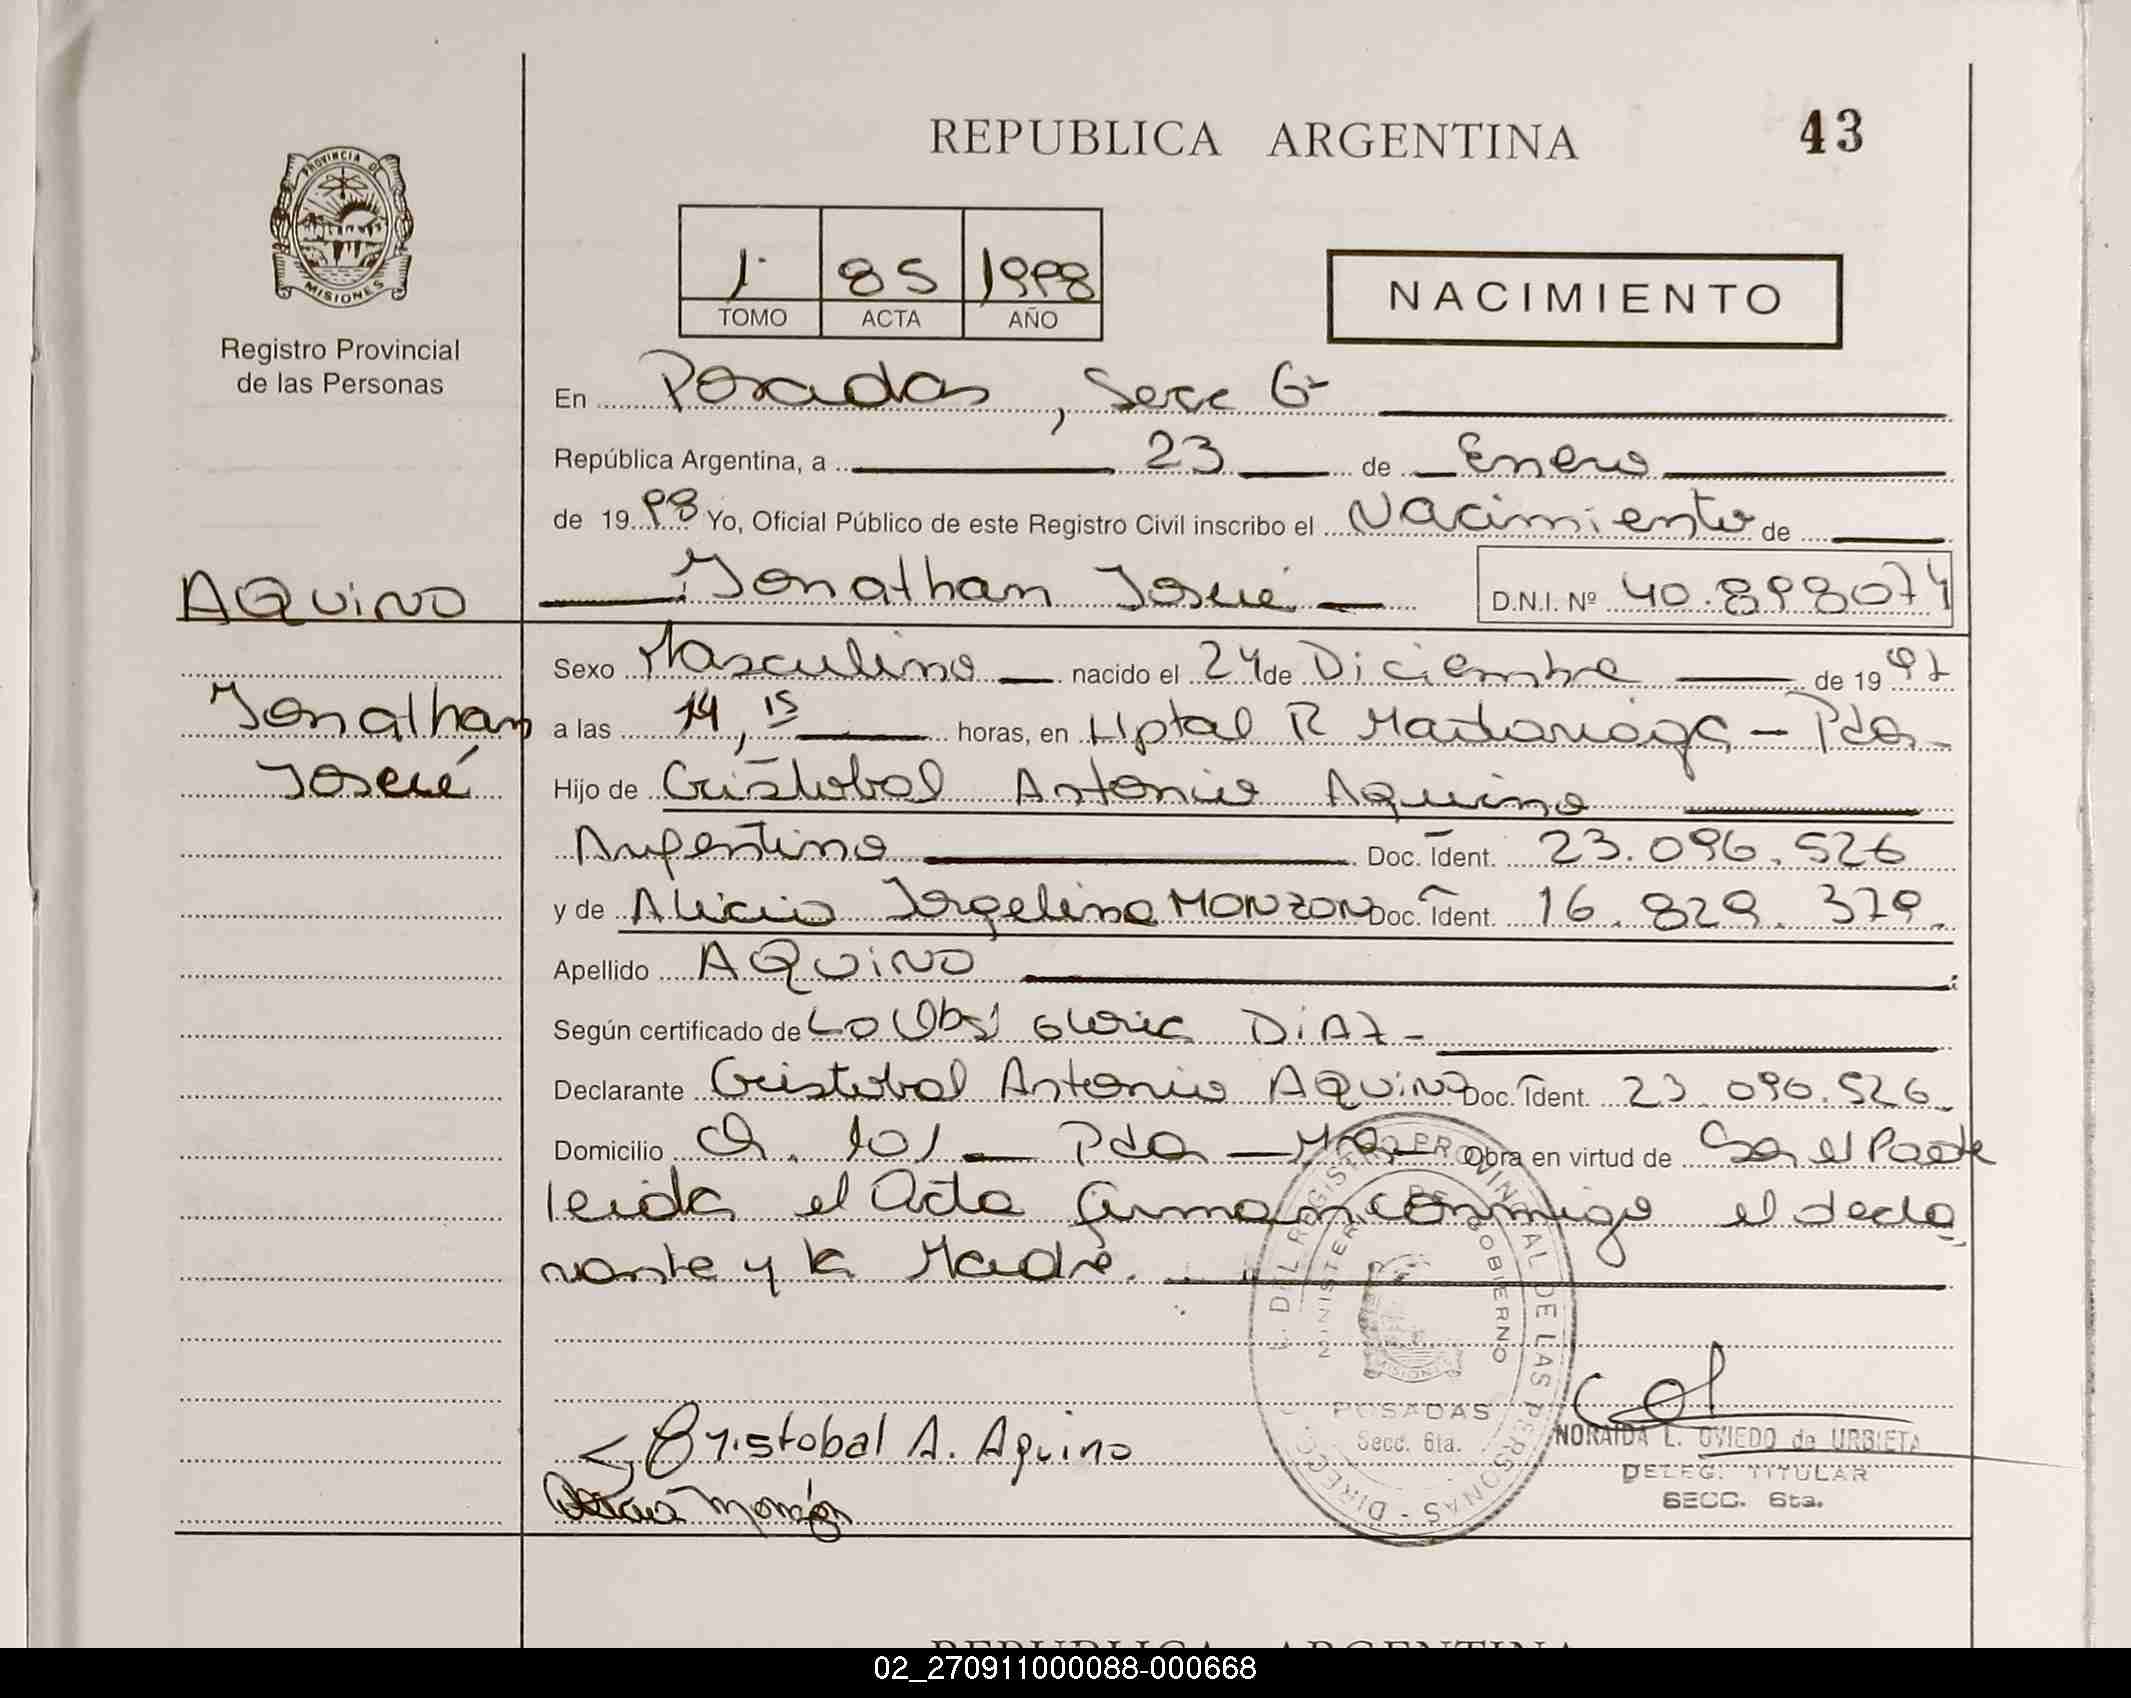 REPUBLICA ARGENTINA
43
PROVINCIA DE
MISIONES
Registro Provincial
de las Personas
1· 85 1998
TOMO ACTA AÑO
NACIMIENTO
En Posadas, Secc 6ª
República Argentina, a 23 de Enero
de 1998 Yo, Oficial Público de este Registro Civil inscribo el Nacimiento de
AQUINO
Jonathan Josué D.N.I. Nº 40.898074
Sexo Masculino nacido el 24 de Diciembre de 1997
Jonathan
a las 14,15 horas, en Hptal R Madariaga - Pdas -
Josué
Hijo de Cristobal Antonio Aquino
Argentino Doc. Ident. 23.096.526
y de Alicia Jorgelina MONZON Doc. Ident. 16.829.379.
Apellido AQUINO
Según certificado de La Obst Gloria DiAZ -
Declarante Cristobal Antonio AQUINO Doc. Ident. 23.096.526
Domicilio Ch. 101 - Pdas - Mnes - Obra en virtud de Ser el Padre
leida el Acta firman conmigo el decla
rante y la Madre.
DIRECC. DEL REGISTRO PROVINCIAL DE LAS PERSONAS -
MINISTERIO DE GOBIERNO
MISIONES
POSADAS
Secc. 6ta.
Cristobal A. Aquino
Monzón
NORAIDA L. OVIEDO de URBIETA
DELEG. TITULAR
SECC. 6ta.
REPUBLICA ARGENTINA
02_270911000088-000668